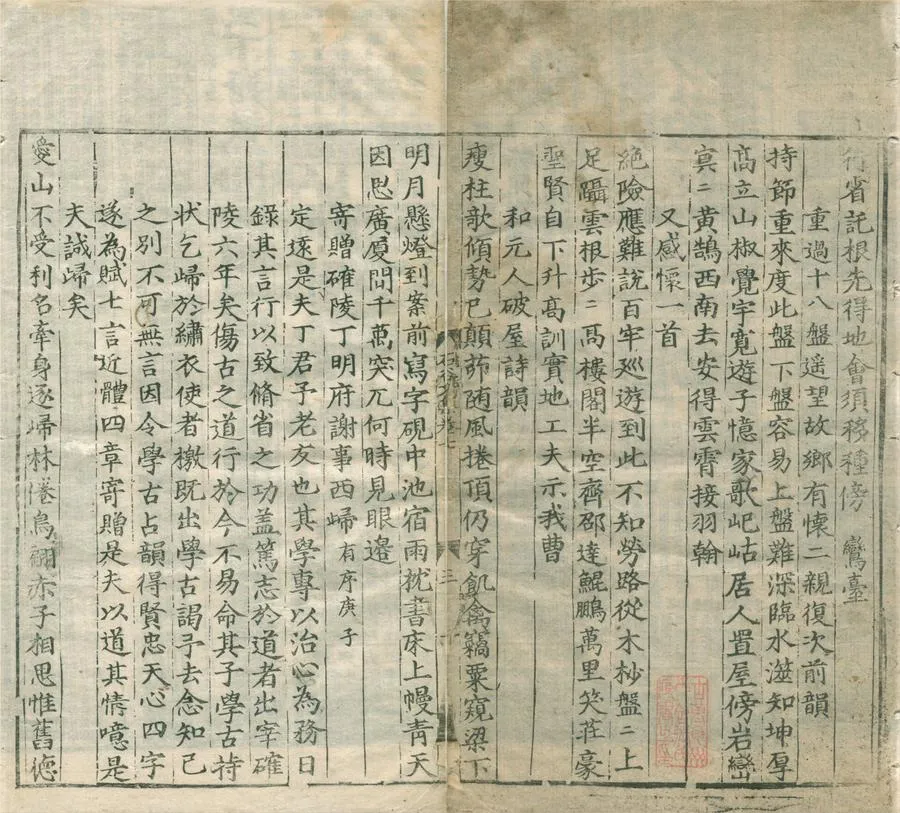 行省託根先得地會須移種傍鸞臺
重過十八盤遥望故鄉有懷二親復次前韻
持節重來度此盤下盤容易上盤難深臨水澨知坤厚
高立山椒覺宇寬遊子憶家歌屺岵居人置屋傍岩巒
冥二黄鵠西南去安得雲霄接羽翰
又感懷一首
絶險應難說百牢廵遊到此不知勞路從木杪盤二上
足躡雲根步二高樓閣半空齊邵逹鯤鵬萬里笑莊豪
聖賢自下升高訓實地工夫示我曹
和元人破屋詩韻
瘦柱欹傾勢已顛茆随風捲頂仍穿飢禽竊粟窺梁下
明月懸燈到案前寫字硯中池宿雨枕書床上幔青天
因思廣厦問千萬突兀何時見眼邉
寄贈確陵丁明府謝事西歸有序庚子
定逺是夫丁君予老友也其學專以治心為務日
錄其言行以致脩省之功盖篤志於道者出宰確
陵六年矣傷古之道行於今不易命其子學古持
狀乞歸於繡衣使者檄既出學古謁予去念知己
之别不可無言因令學古占韻得賢忠天心四字
遂為賦七言近體四章寄贈是夫以道其情噫是
夫誠歸矣
愛山不受利名牽身逐歸林倦鳥翩亦子相思惟舊德